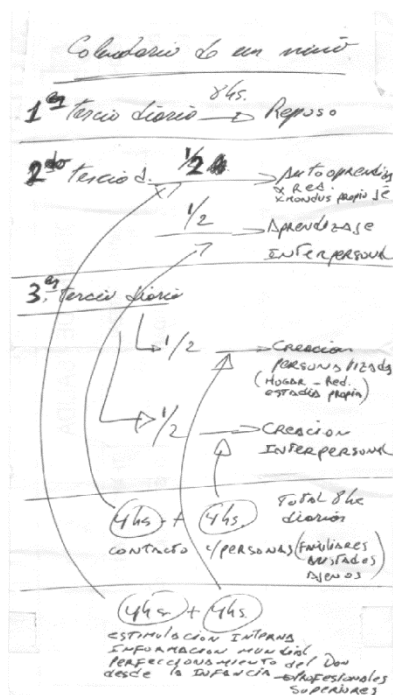 Calendario de un niño
8hs.
1er tercio diario → Reposo
2do tercio d. 1/2 → Autoaprendiz
x Red.
1/2 → Aprendizaje
Interpersonal
3er tercio diario
1/2 → Creacion
Personalizada
(Hogar - Red.
estadía propia)
1/2 → Creacion
Interpersonal
4hs. + 4hs. Total 8hs
diarios
contacto c/personas (Familiares
Amistades
Ajenos)
4hs + 4hs.
Estimulacion Interna
Informacion Mundial
Perfeccionamiento del Don
desde la Infancia - Profesionales
Superiores